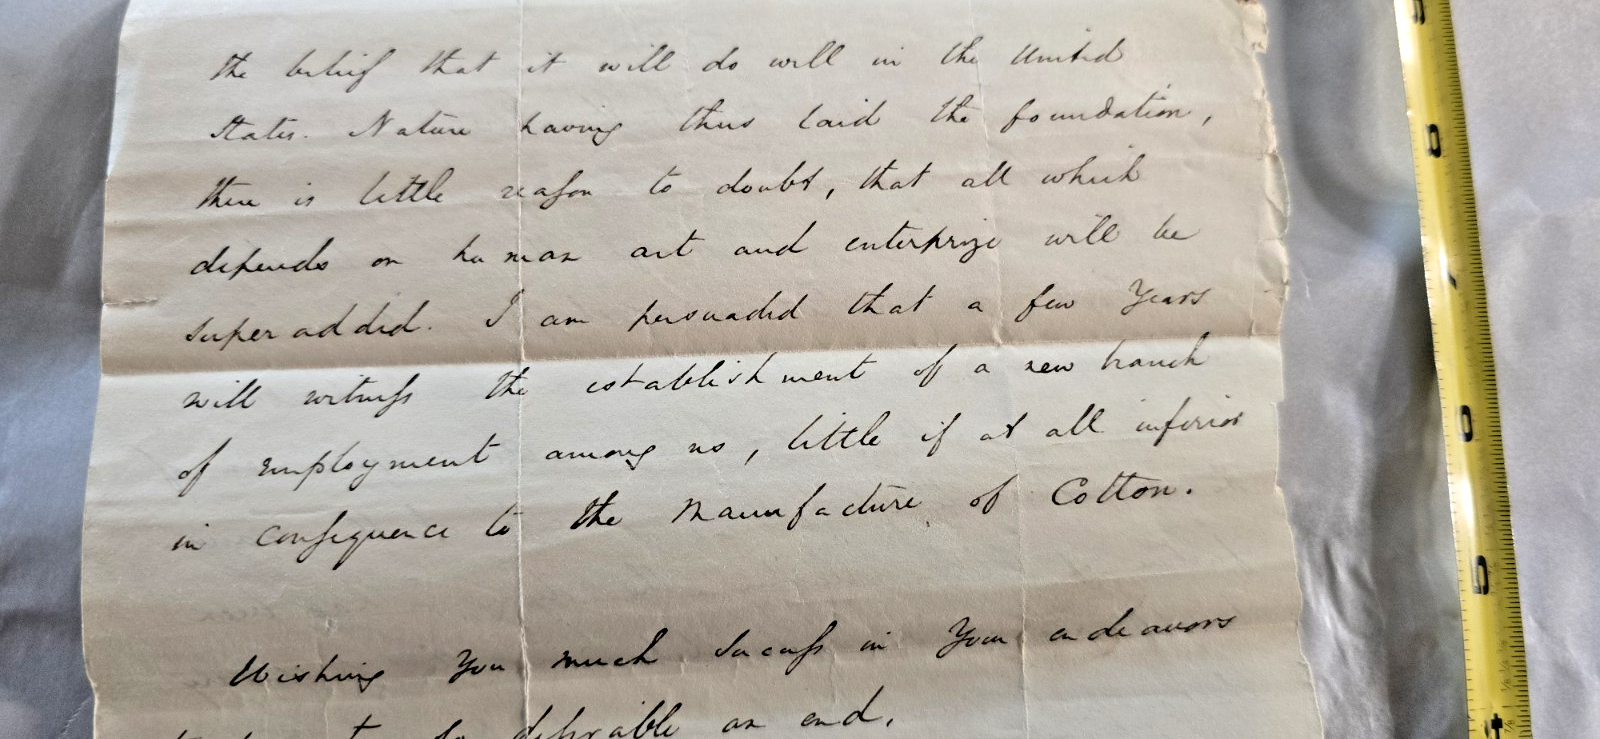 the belief that it will do well in the United
States. Nature having thus laid the foundation,
there is little reason to doubt, that all which
depends on human art and enterprize will be
superadded. I am persuaded that a few Years
will witness the establishment of a new branch
of employment among us, little if at all inferior
in consequence to the Manufacture of Cotton.
Wishing You much Success in Your endeavors
so desirable an end.